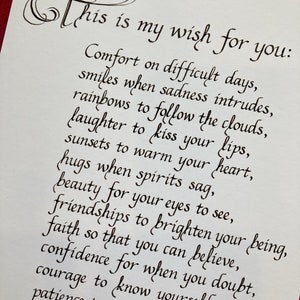 This is my wish for you:
Comfort on difficult days,
smiles when sadness intrudes,
rainbows to follow the clouds,
laughter to kiss your lips,
sunsets to warm your heart,
hugs when spirits sag,
beauty for your eyes to see,
friendships to brighten your being,
faith so that you can believe,
confidence for when you doubt,
courage to know
patience